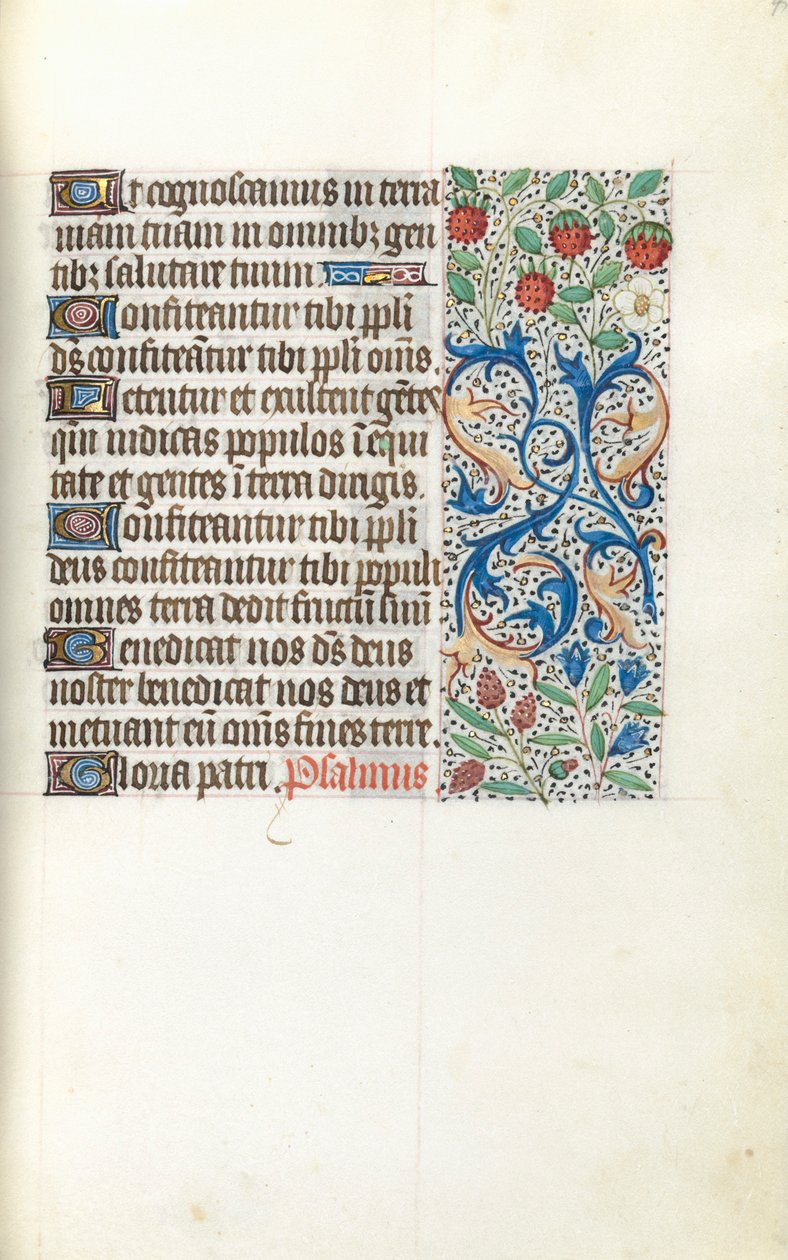 Ut cognoscamus in terra
viam tuam in omnibꝫ gen
tibꝫ salutare tuum
Confiteantur tibi ppli
ds̄ confiteātur tibi ppli om̄s.
Letentur et exultent gētes
qm̄ iudicas populos ī equi
tate et gentes ī terra dirigis.
Confiteantur tibi ppli
deus confiteantur tibi populi
omnes terra dedit fructū suū
Benedicat nos ds̄ deus
noster benedicat nos deus et
metuant eū om̄s fines terre.
Gloria patri. Psalmus.